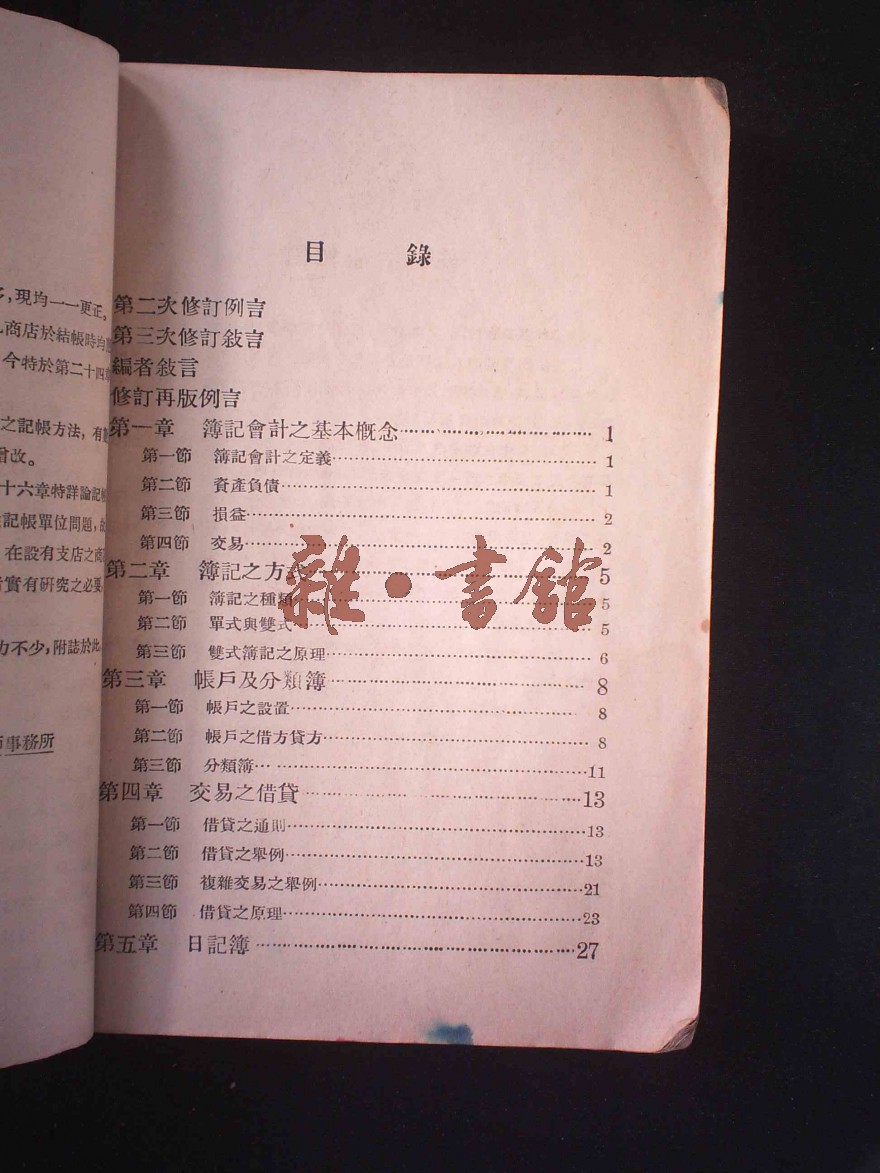 多,現均一一更正。
商店於結帳時均
今特於第二十四章
之記帳方法,有
增改。
十六章特詳論記帳
記帳單位問題,故
在設有支店之商
實有研究之必要
力不少,附誌於此
事務所
目 錄
第二次修訂例言
第三次修訂敍言
編者敍言
修訂再版例言
第一章 簿記會計之基本概念 1
第一節 簿記會計之定義 1
第二節 資產負債 1
第三節 損益 2
第四節 交易 2
第二章 簿記之方式 5
第一節 簿記之種類 5
第二節 單式與雙式 5
第三節 雙式簿記之原理 6
第三章 帳戶及分類簿 8
第一節 帳戶之設置 8
第二節 帳戶之借方貸方 8
第三節 分類簿 11
第四章 交易之借貸 13
第一節 借貸之通則 13
第二節 借貸之舉例 13
第三節 複雜交易之舉例 21
第四節 借貸之原理 23
第五章 日記簿 27
雜·書館